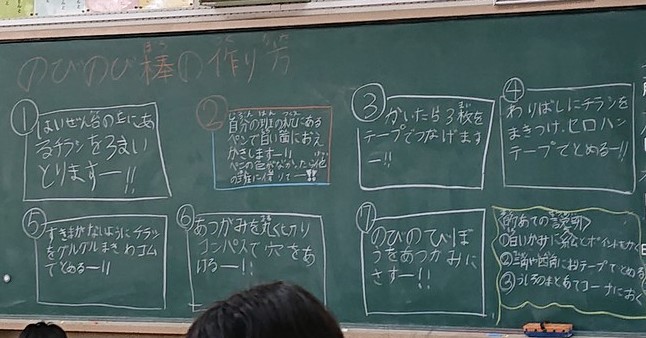 のびのび棒の作り方
①
はいぜん台の上にあ
るチラシを3まい
とります―!!
②
自分の班の机にある
ペンで白い面におえ
かきします―!!
ペンの色がなかったら他
の班に借りて―!!!
③
かいたら3枚を
テープでつなげます
―!!
④
わりばしにチラシを
まきつけ、セロハン
テープでとめる―!!
⑤
すきまがないようにチラシ
をグルグルまきわゴム
でとめる―!!
⑥
あつがみを丸く切り
コンパスで穴をあ
ける―!!
⑦
のびのびぼ
うをあつがみに
さす―!!
①白いかみに絵とポイントをかく
テープでとめる
③うしろのまとあてコーナーにおく